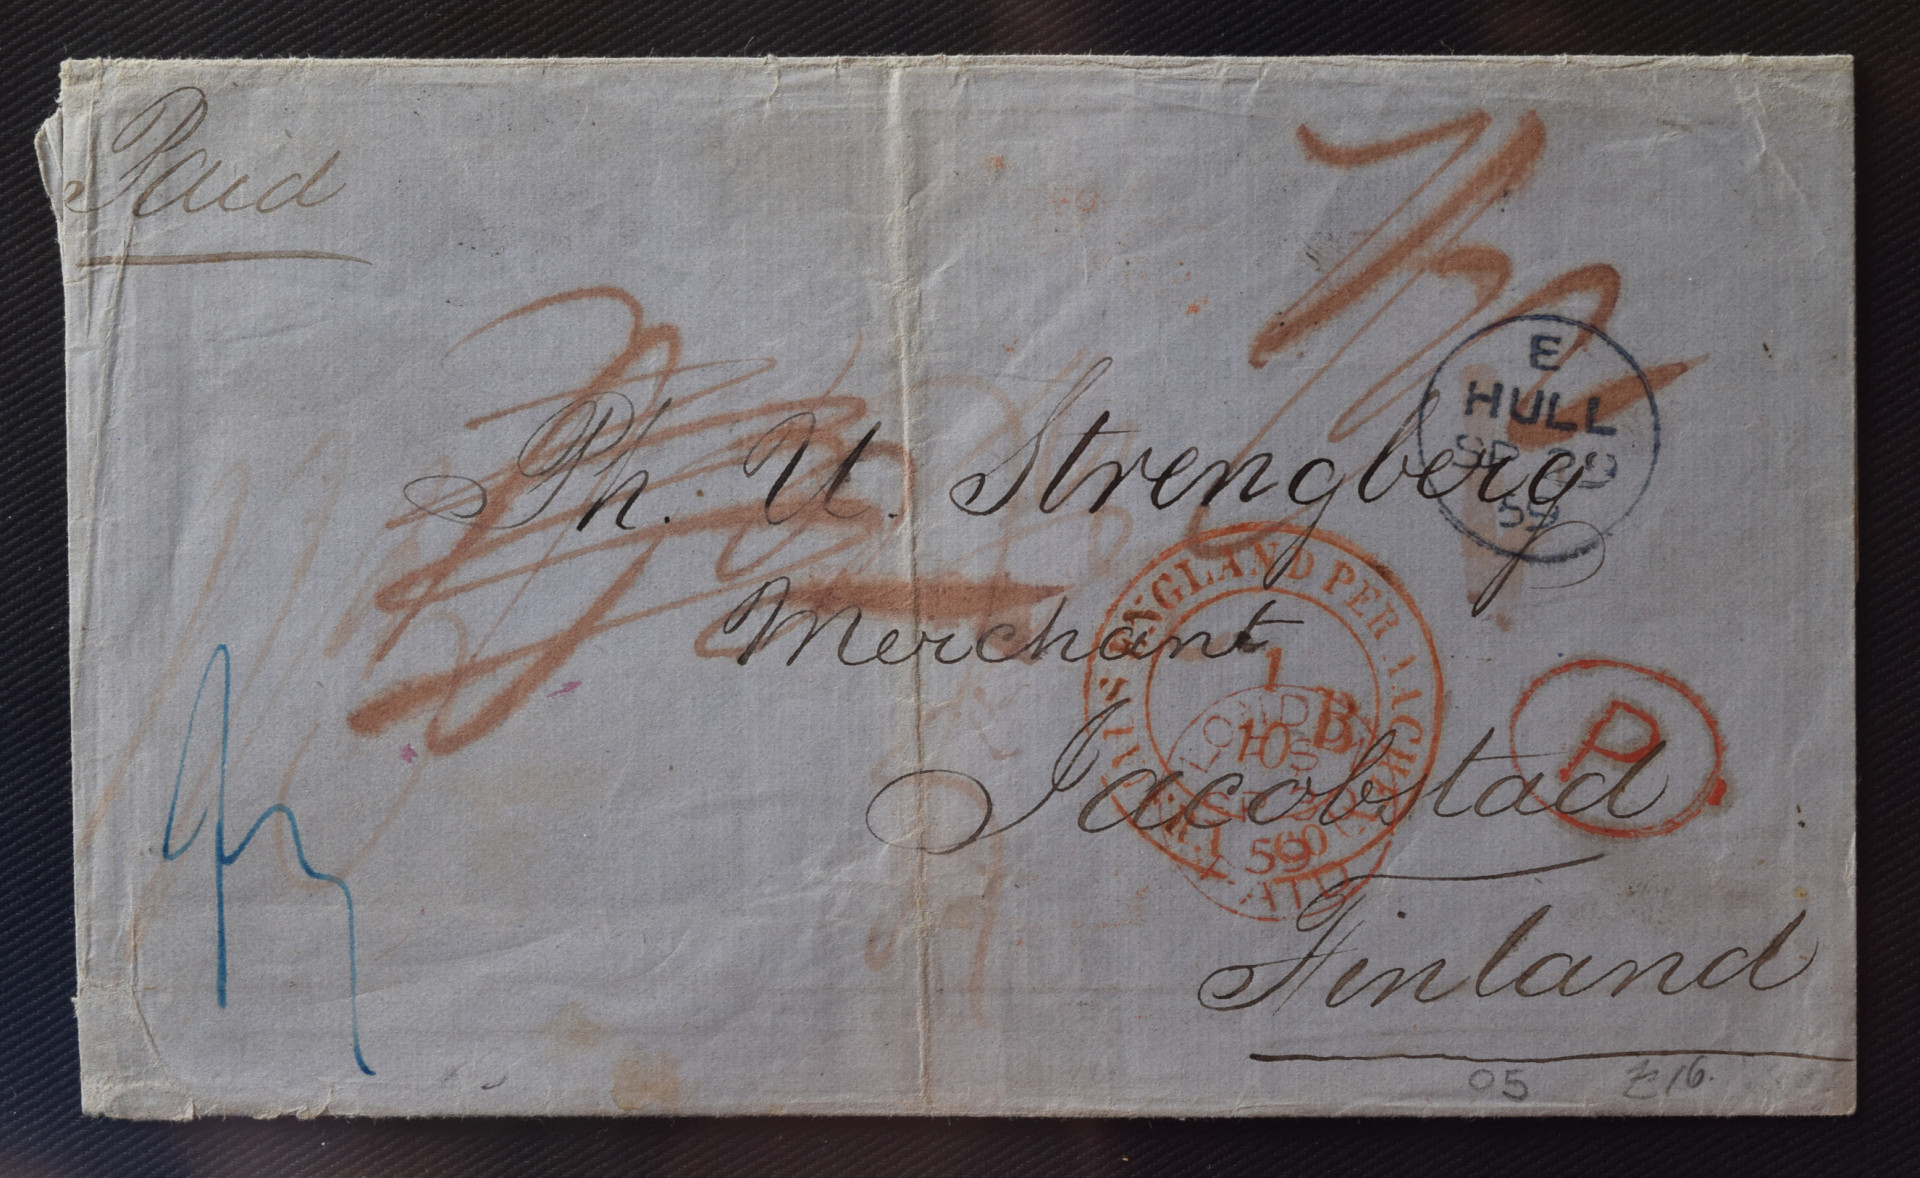 Paid
E
HULL
SP 29
59
Ph. U. Strengberg
Merchant
ENGLAND PER
1
B
10
59
P
Jacobstad
Finland
05
16.